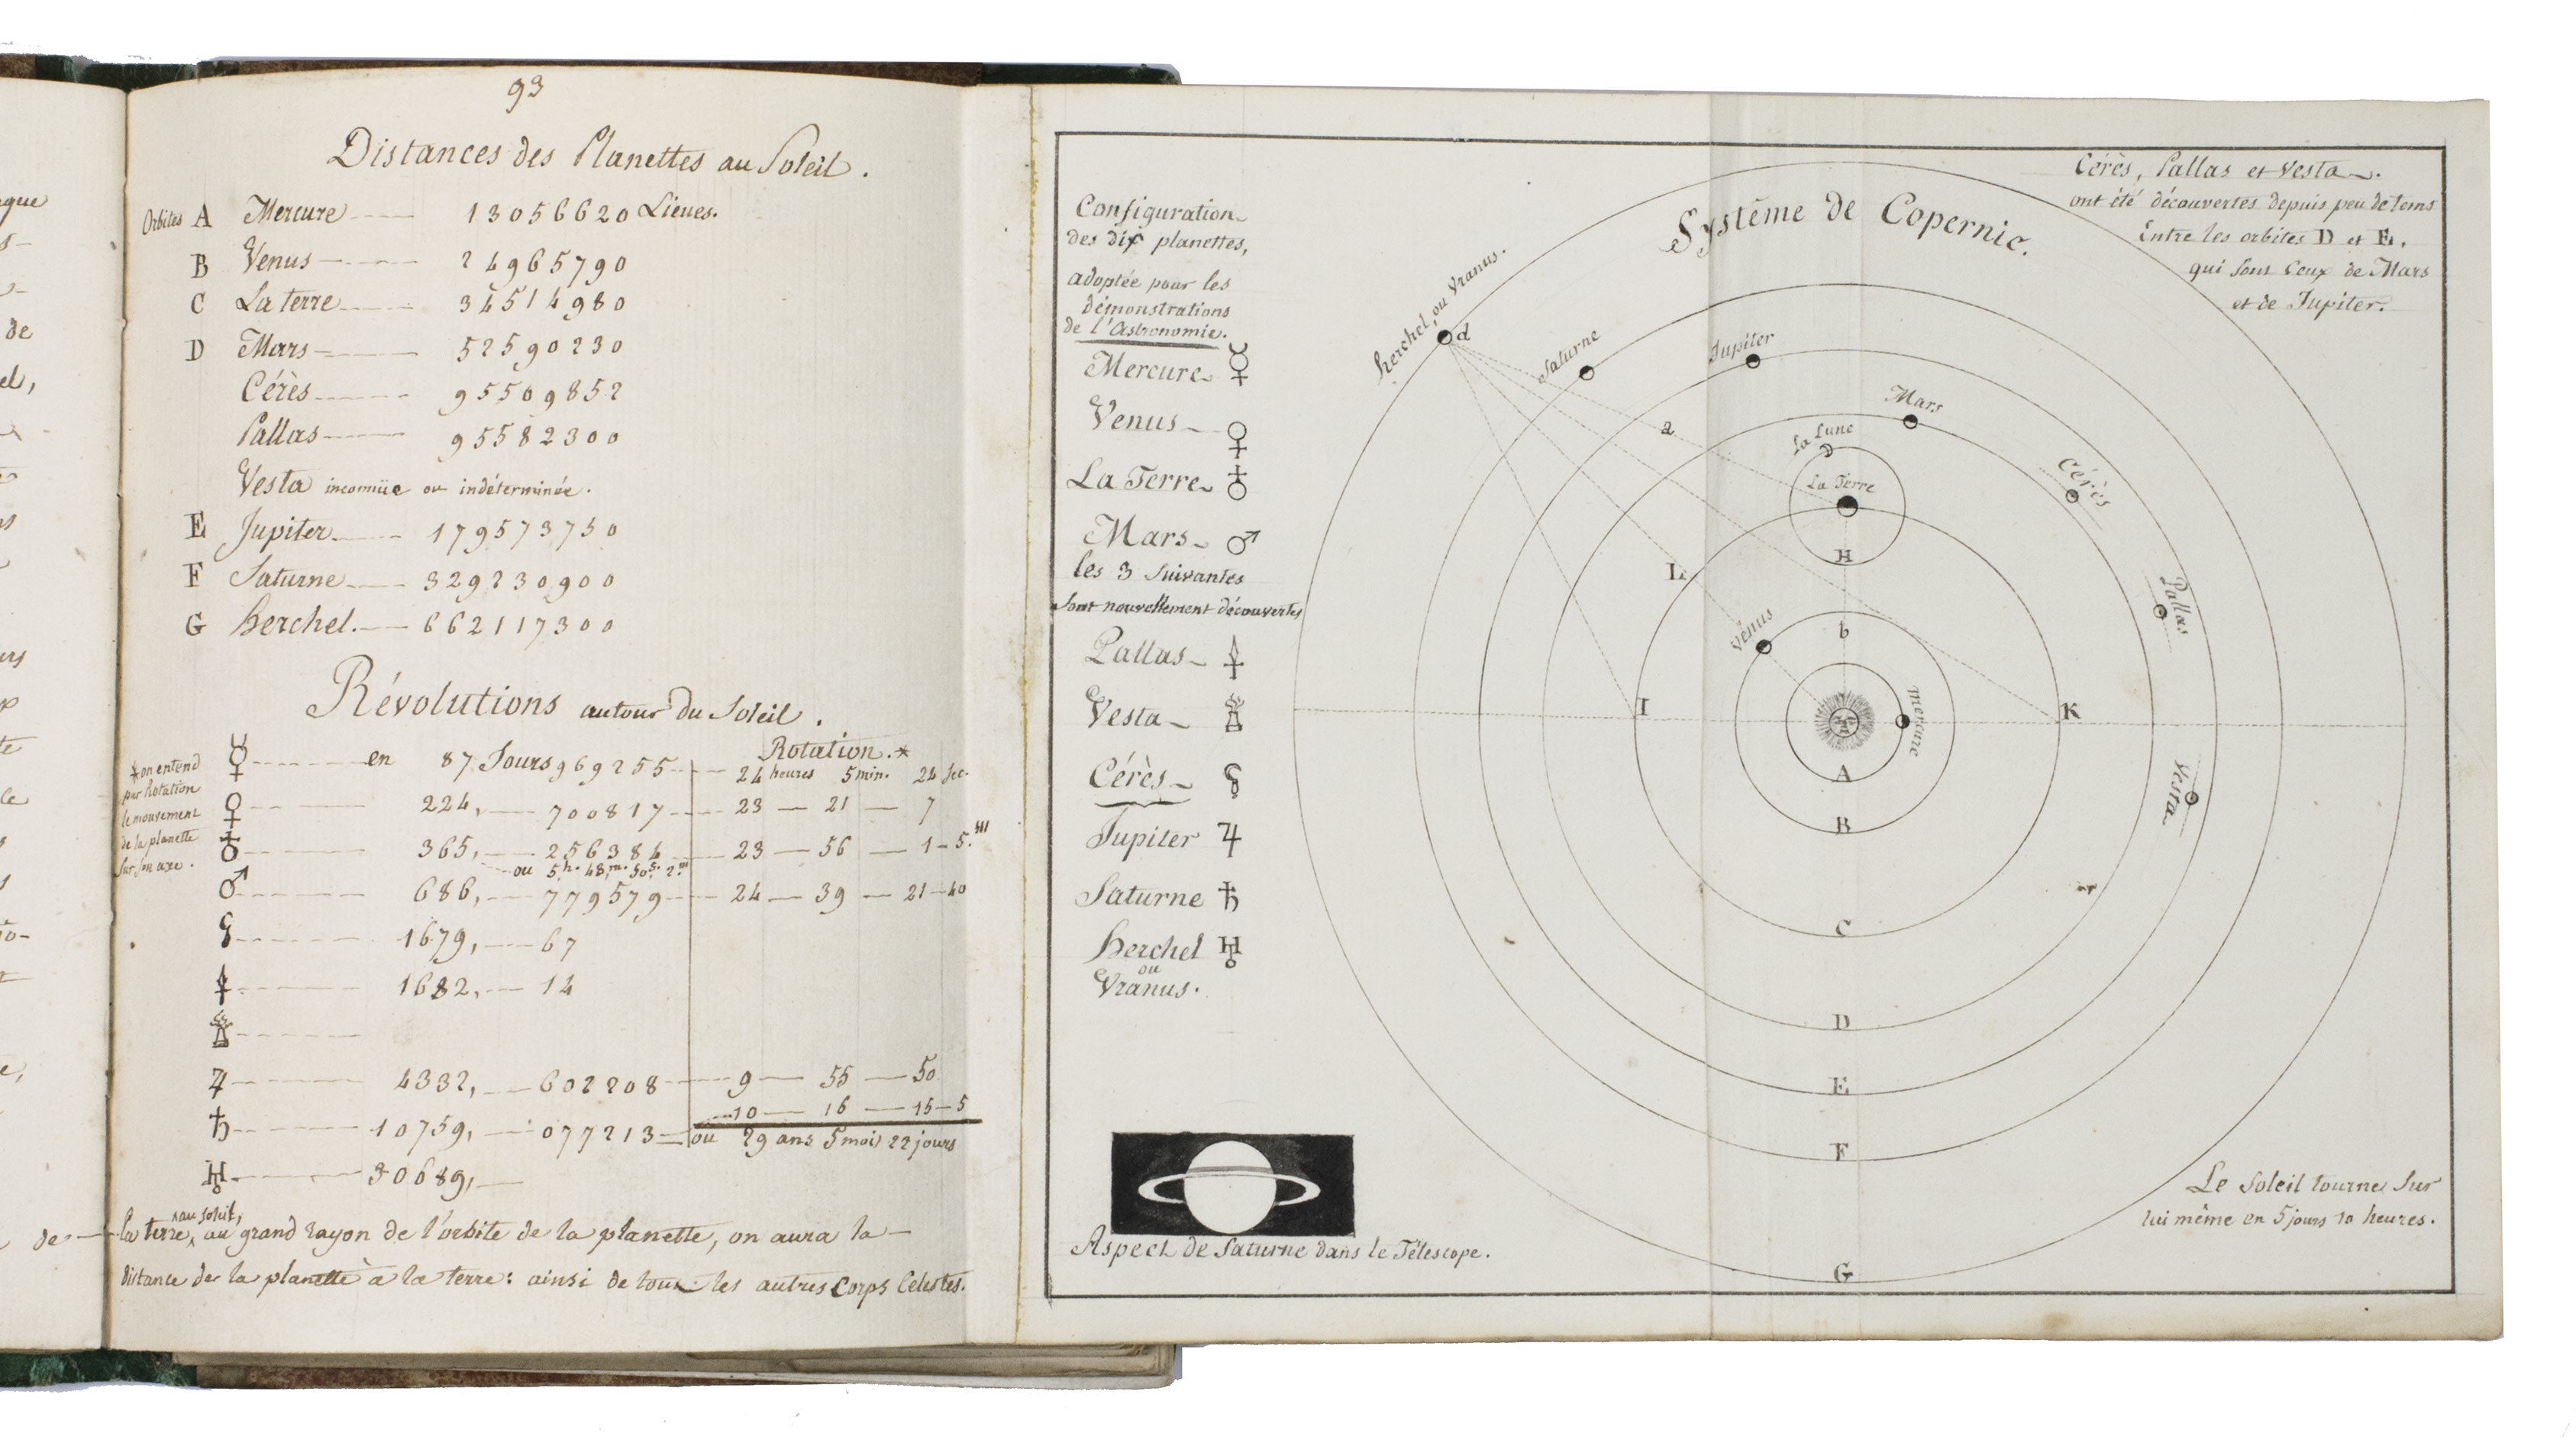 93
Distances des Planettes au Soleil.
Orbites A Mercure 13056620 Lieues.
B Venus 24965790
C La terre 34514980
D Mars 52590230
Cérès 95509852
Pallas 95582300
Vesta inconnüe ou indéterminée.
E Jupiter 179573750
F Saturne 329230900
G herchel. 662117300
Révolutions autour du Soleil.
Rotation.*
☿ en 87 Jours 969255 24 heures 5 min. 24 sec.
♀ 224, 700817 23 — 21 — 7
♁ 365, 256384 23 — 56 — 1 — 5.'''
ou 5h. 48m. 50s. 2'''
♂ 686, 779579 24 — 39 — 21 — 40
⚳ 1679, 67
⚴ 1682, 14
⚶
♃ 4332, 602208 9 — 55 — 50
10 — 16 — 15 — 5
♄ 10759, 077213 ou 29 ans 5 mois 22 jours
♅ 30689,
*on entend
par Rotation
le mouvement
de la planette
sur son axe.
de la terre, au soleil, au grand rayon de l'orbite de la planette, on aura la
distance de la planette à la terre: ainsi de tous les autres Corps Celestes.
Configuration
des dix planettes,
adoptée pour les
démonstrations
de l'Astronomie.
Mercure ☿
Venus ♀
La Terre ♁
Mars ♂
les 3 suivantes
sont nouvellement découvertes
Pallas ⚴
Vesta ⚶
Cérès ⚳
Jupiter ♃
Saturne ♄
herchel ♅
ou
Vranus.
Aspect de Saturne dans le Télescope.
Systême de Copernic.
Cérès, Pallas et Vesta.
ont été découvertes depuis peu de tems
Entre les orbites D et E,
qui sont Ceux de Mars
et de Jupiter.
herchel, ou Vranus.
d
Saturne
Jupiter
Mars
a
La Lune
La Terre
Cérès
H
L
Pallas
Vénus
b
I
mercure
K
A
Vesta
B
C
D
E
F
G
Le Soleil tourne sur
lui même en 5 jours 10 heures.